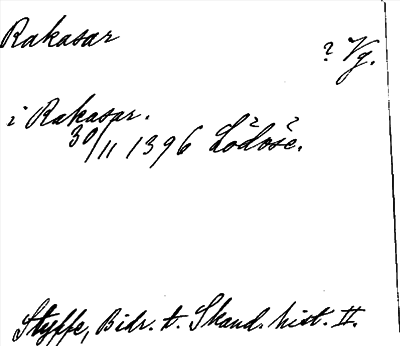 Rakasar
? Vg.
i Rakasar.
30/11 1396 Lödöse.
Styffe, Bidr. t. Skand. hist. II.